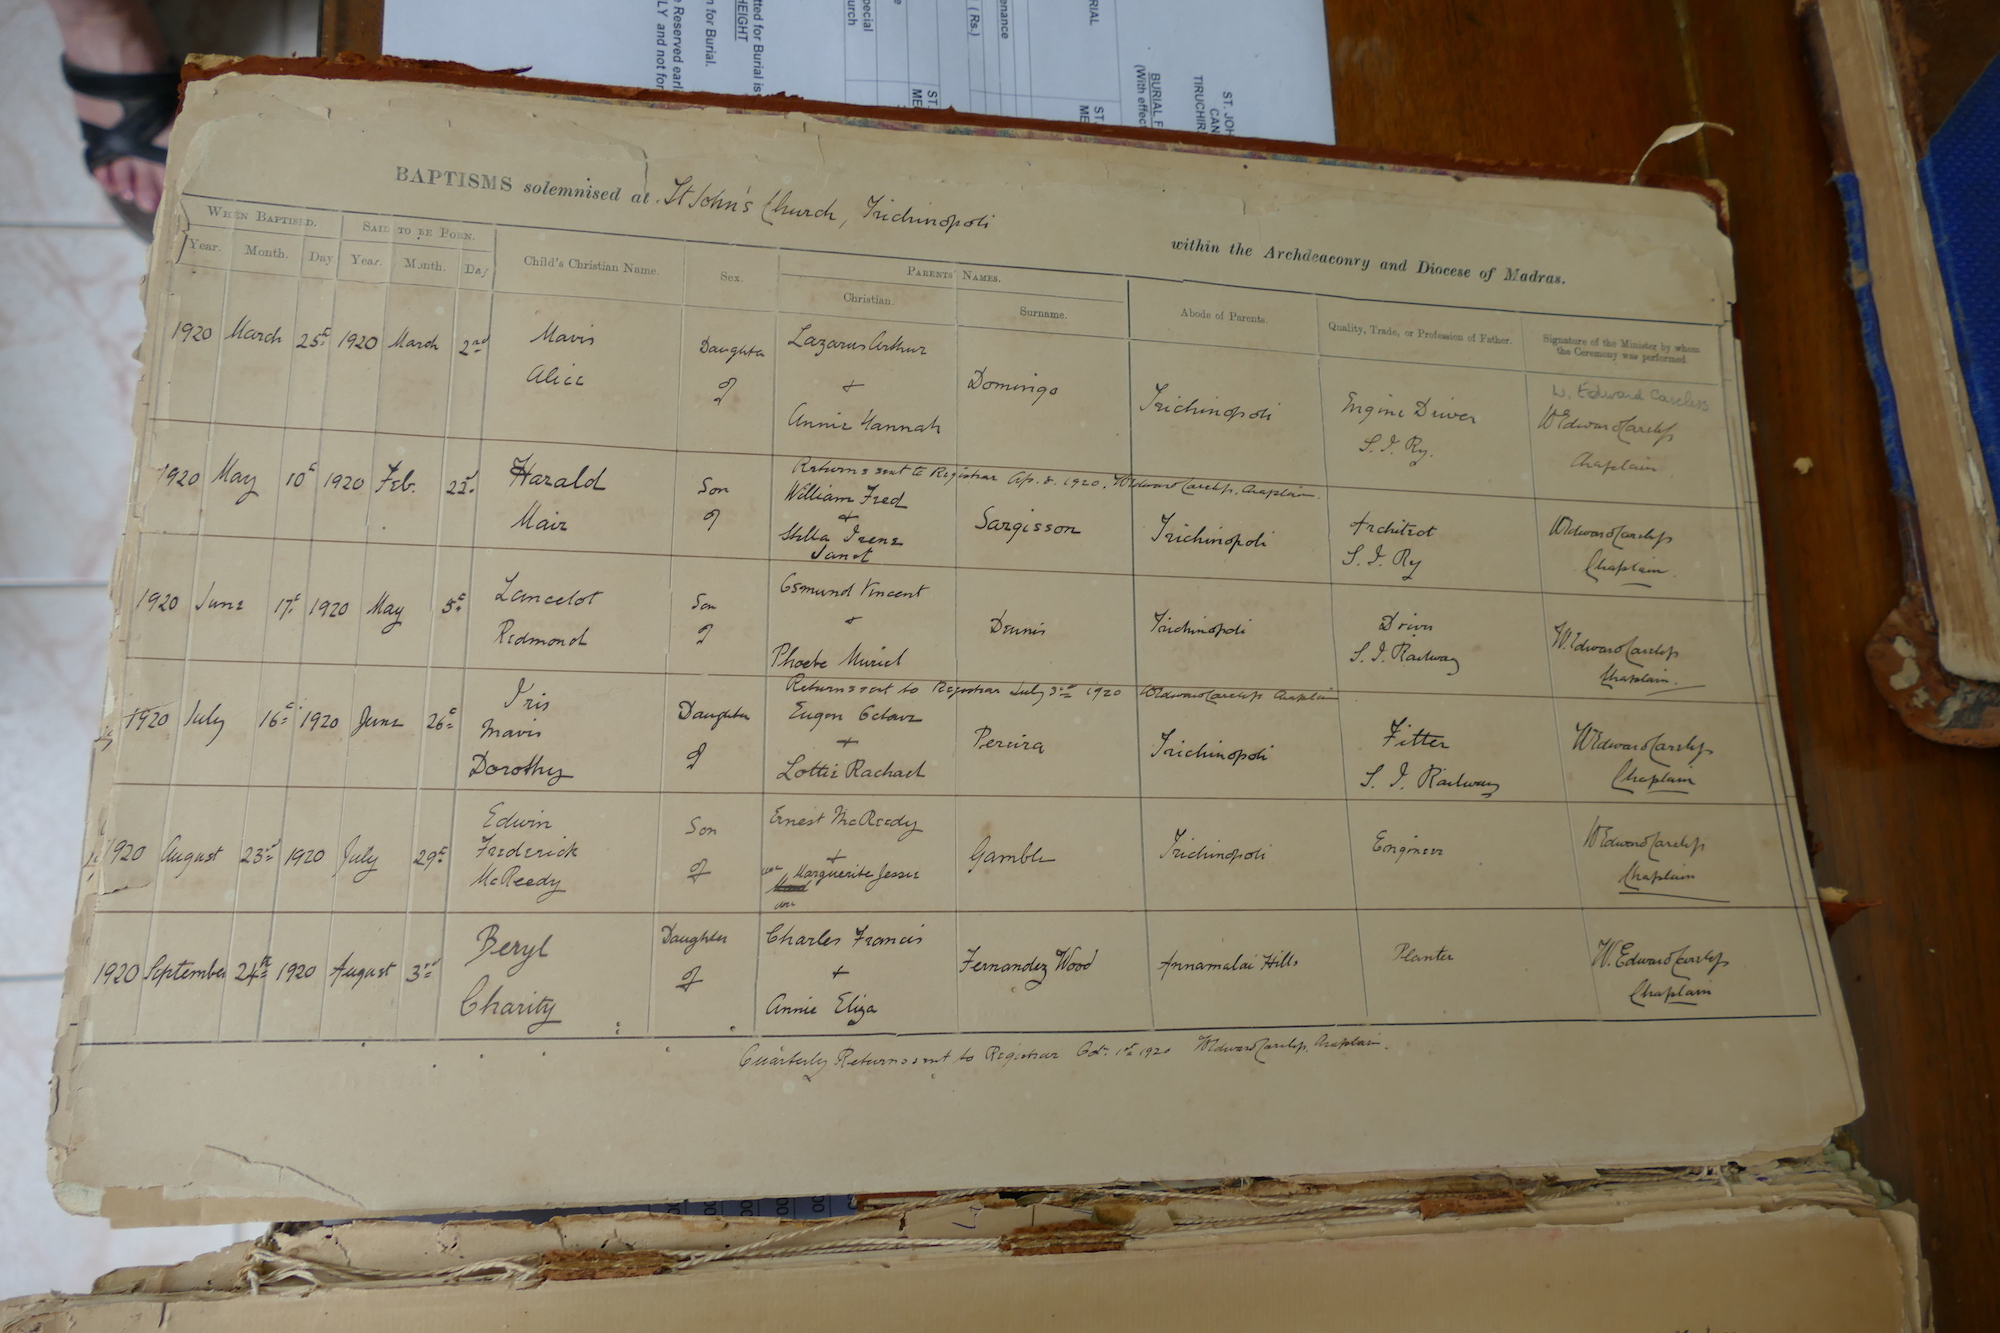 BAPTISMS solemnised at St John's Church, Trichinopoli
within the Archdeaconry and Diocese of Madras.
WHEN BAPTISED. SAID TO BE BORN. Child's Christian Name. Sex. PARENTS' NAMES. Abode of Parents. Quality, Trade, or Profession of Father. Signature of the Minister by whom the Ceremony was performed.
Year. Month. Day Year. Month. Day Christian. Surname.
1920 March 25th 1920 March 2nd Mavis Alice Daughter of Lazarus Arthur + Annie Hannah Domingo Trichinopoli Engine Driver S. I. Ry. W. Edward Careless
W Edward Careless Chaplain
Returns sent to Registrar Ap. 8. 1920. W Edward Careless, Chaplain.
1920 May 10th 1920 Feb. 22nd Harald Mair Son of William Fred + Stella Irene Janet Sargisson Trichinopoli Architect S. I. Ry W Edward Careless Chaplain.
1920 June 17th 1920 May 5th Lancelot Redmond Son of Osmund Vincent + Phoebe Muriel Dennis Trichinopoli Driver S. I. Railway W. Edward Careless Chaplain.
Returns sent to Registrar July 3rd 1920 W Edward Careless Chaplain
1920 July 16th 1920 June 26th Iris Mavis Dorothy Daughter of Eugen Octave + Lottie Rachael Pereira Trichinopoli Fitter S. I. Railway W Edward Careless Chaplain
1920 August 23rd 1920 July 29th Edwin Frederick McReedy Son of Ernest McReedy + Marguerite Jessie Gamble Trichinopoli Engineer W Edward Careless Chaplain
1920 September 24th 1920 August 3rd Beryl Charity Daughter of Charles Francis + Annie Eliza Fernandez Wood Annamalai Hills Planter W. Edward Careless Chaplain
Quarterly Returns sent to Registrar Oct. 1st 1920 W Edward Careless, Chaplain.